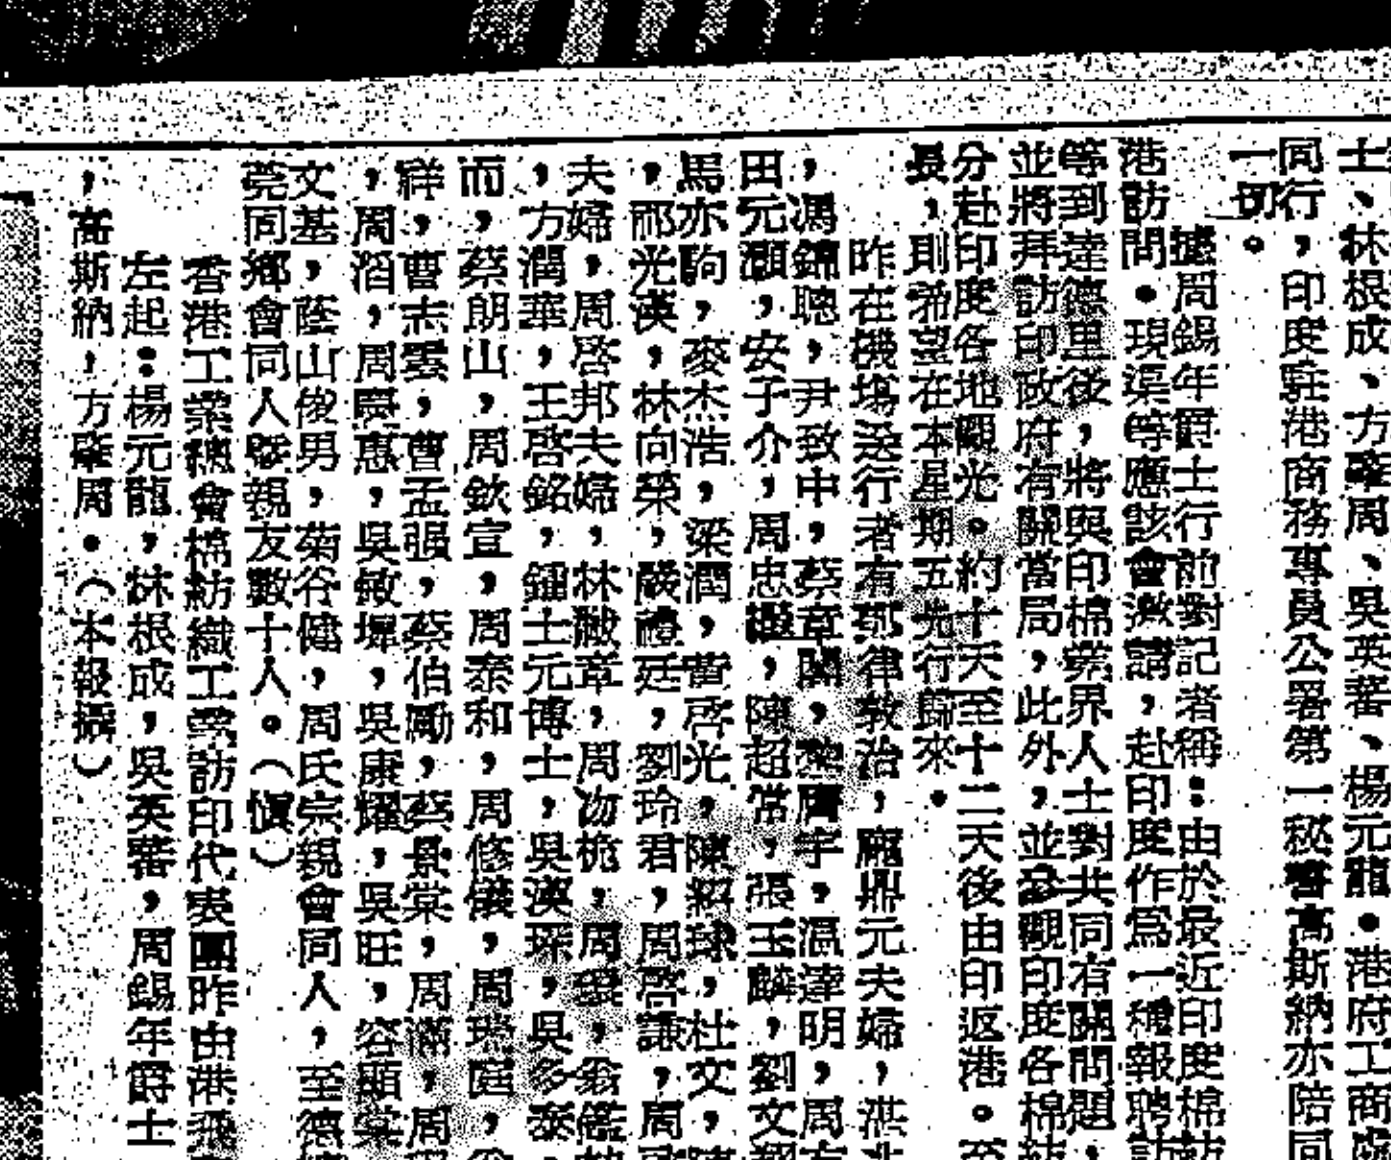 士、林根成、方肇周、吳英蕃、楊元龍。港府工商處
同行，印度駐港商務專員公署第一秘書高斯納亦陪同
一切。
據周錫年爵士行前對記者稱：由於最近印度棉紡
港訪問。現渠等應該會邀請，赴印度作為一種報聘訪
等到達德里後，將與印棉業界人士對共同有關問題，
並將拜訪印政府有關當局，此外，並參觀印度各棉紡
分赴印度各地觀光。約十天至十二天後由印返港。至
長，則希望在本星期五先行歸來。
昨在機場送行者有耶律敦治，龐鼎元夫婦，洪
，馮錦聰，尹致中，蔡章閣，黎
宇，溫達明，周
田元灝，安子介，周忠繼，陳超常，張玉麟，劉文
馬亦駒，麥杰浩，梁潤，黃啓光，陳紹球，杜文，陳
，祁光漢，林向榮，嚴禮廷，劉玲君，周啓謙，周
夫婦，周啓邦夫婦，林黻章，周
，方潤華，王啓銘，鍾士元博士，吳漢琛，吳多泰，
而，蔡朗山，周欽宣，周泰和，周修儀，周
庭，
祥，曹志雲，曹孟强，蔡伯勵，蔡景棠，周滿，周
，周滔，周慶惠，吳敏墀，吳康耀，吳旺，容顯棠
文基，蔭山俊男，菊谷健，周氏宗親會同人，至德
莞同鄉會同人曁親友數十人。（愼）
香港工業總會棉紡織工業訪印代表團昨由港飛
左起：楊元龍，林根成，吳英蕃，周錫年爵士
，高斯納，方肇周。（本報攝）